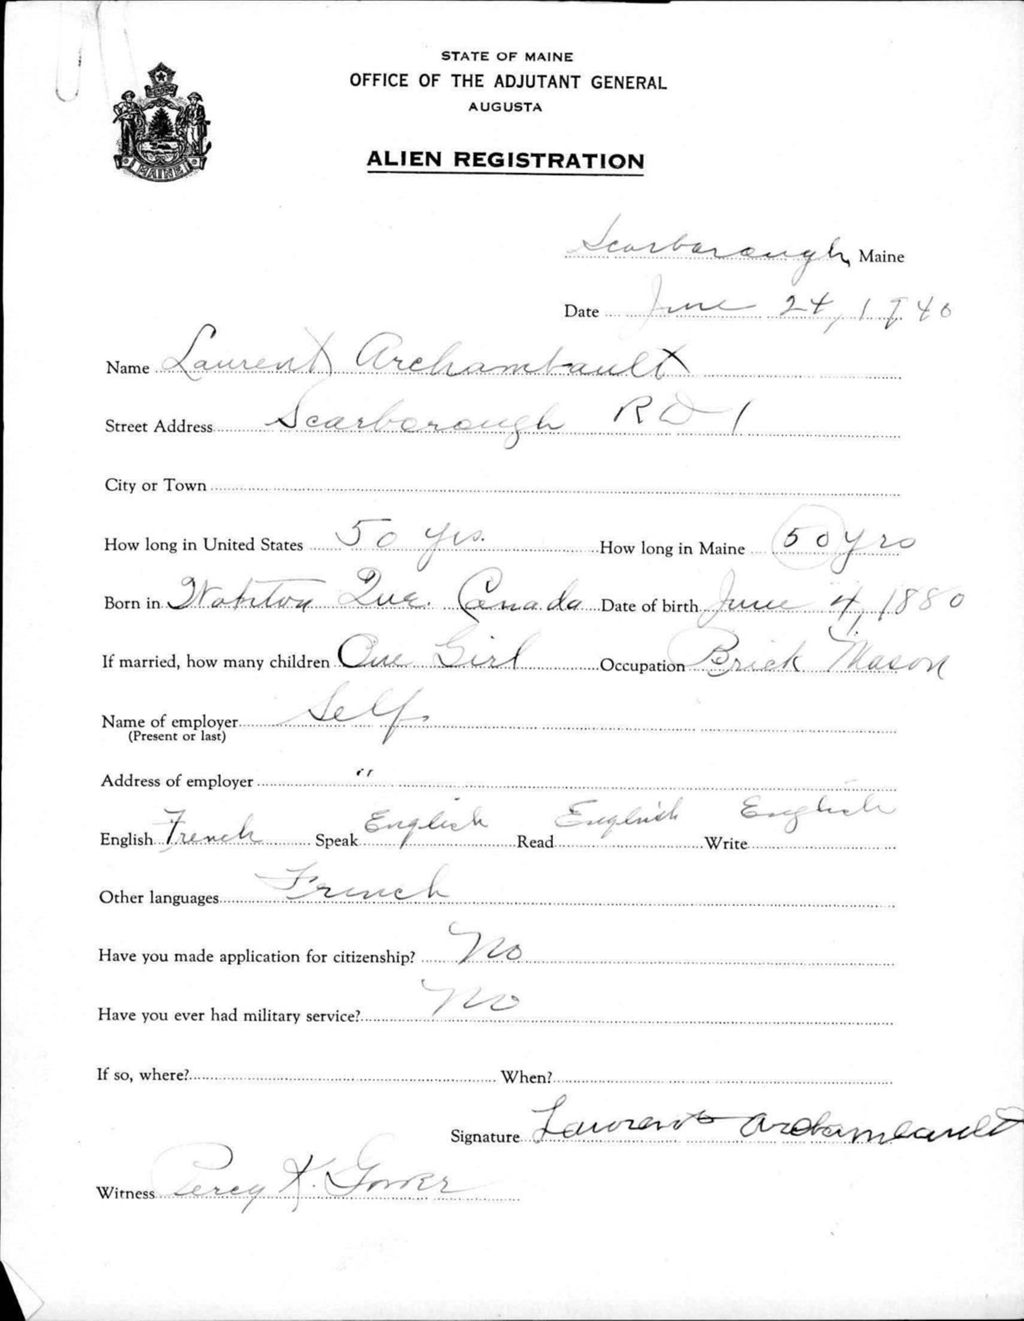 STATE OF MAINE
OFFICE OF THE ADJUTANT GENERAL
AUGUSTA
ALIEN REGISTRATION
MAINE
Scarborough, Maine
Date June 24, 1940
Name Laurent Archambault
Street Address Scarborough RD 1
City or Town
How long in United States 50 yrs. How long in Maine 50 yrs
Born in Que. Canada Date of birth June 4, 1880
If married, how many children One Girl Occupation Brick Mason
Name of employer Self
(Present or last)
Address of employer "
English French Speak English Read English Write English
Other languages French
Have you made application for citizenship? No
Have you ever had military service? No
If so, where? When?
Signature Laurent Archambault
Witness Percy K. Gower